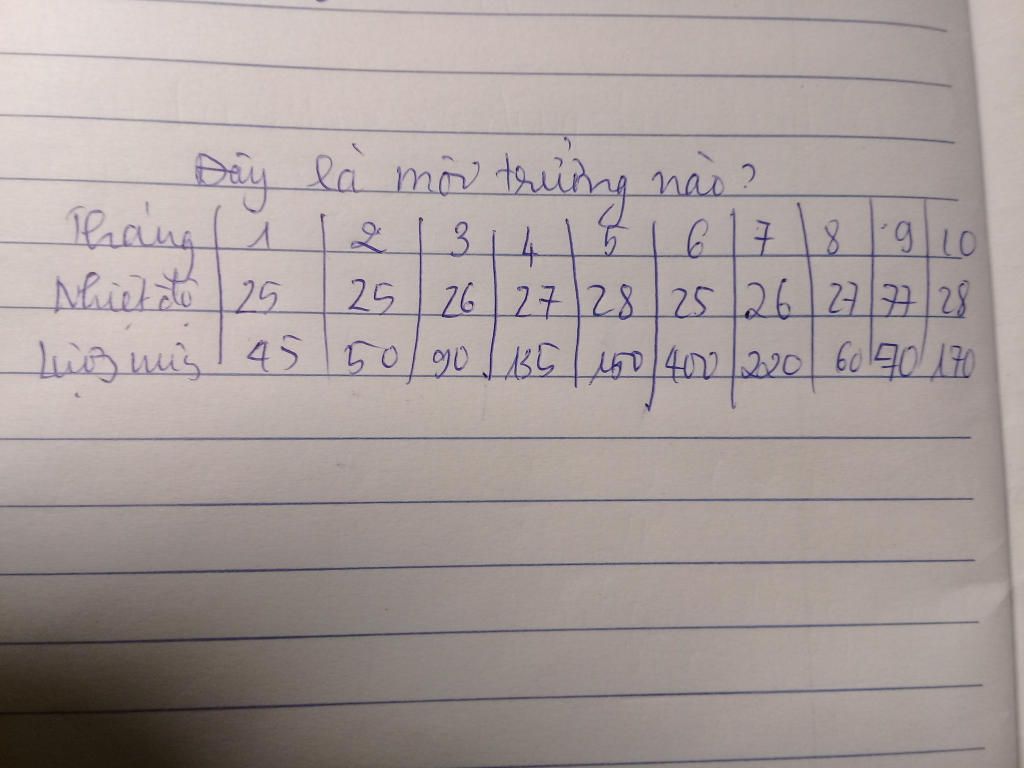 Đây là môi trường nào?
Tháng 1 2 3 4 5 6 7 8 9 10
Nhiệt độ 25 25 26 27 28 25 26 27 77 28
Lượng mưa 45 50 90 135 160 400 220 60 70 170